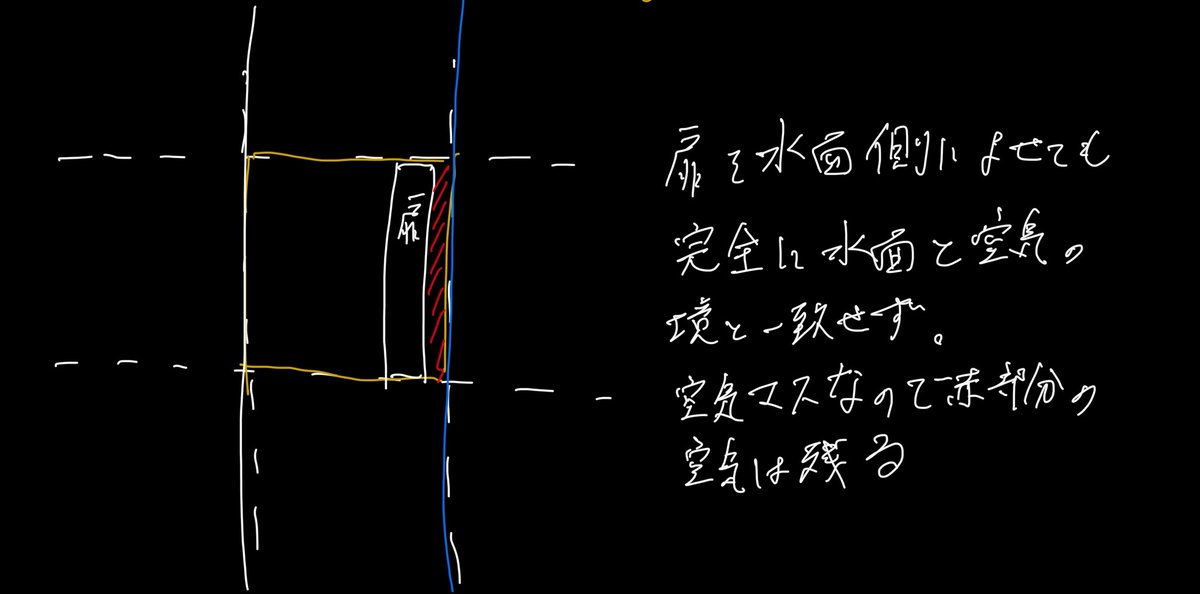 扉
扉を水面側によせても
完全に水面と空気の
境と一致せず。
空気マスなので赤部分の
空気は残る